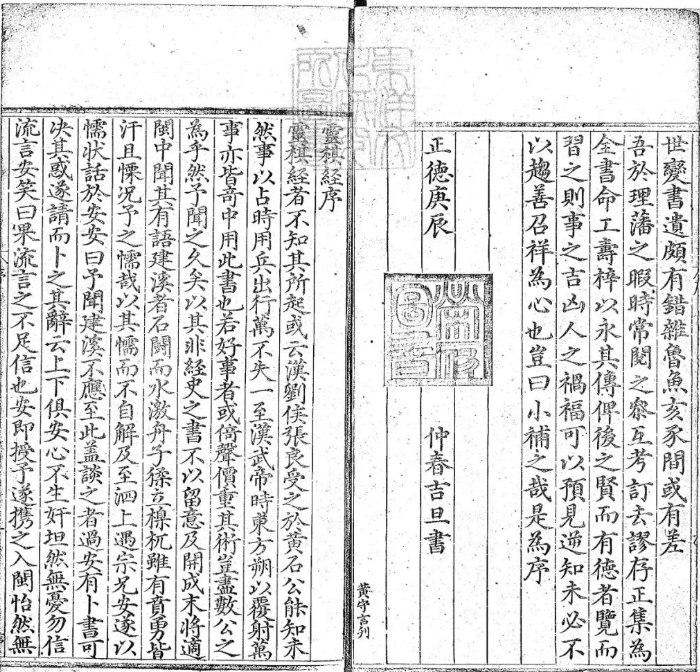 世變書遺頗有錯雜魯魚亥豕間或有差
吾於理藩之暇時常閱之參互考訂去謬存正集為
全書命工壽梓以永其傳俾後之賢而有德者覽而
習之則事之吉凶人之禍福可以預見逆知未必不
以趨善召祥為心也豈曰小補之哉是為序
正德庚辰
仲春吉旦書
黃守言刊
靈棋經序
靈棋經者不知其所起或云漢劉侯張良受之於黃石公能知未
然事以占時用兵出行萬不失一至漢武帝時東方朔以覆射萬
事亦皆奇中用此書也若好事者或倚聲價重其術豈盡數公之
為乎然予聞之久矣以其非經史之書不以留意及開成末將適
閩中聞其有語建溪者石鬭而水激舟子孫立㮟杌雖有賁勇皆
汗且慄況予之懦哉以其懦而不自解及至泗上遇宗兄安遂以
懦狀話於安安曰予聞建溪不應至此盖談之者過安有卜書可
决其惑遂請而卜之其辭云上下俱安心不生奸坦然無憂勿信
流言安笑曰果流言之不足信也安即授予遂携之入閩怡然無